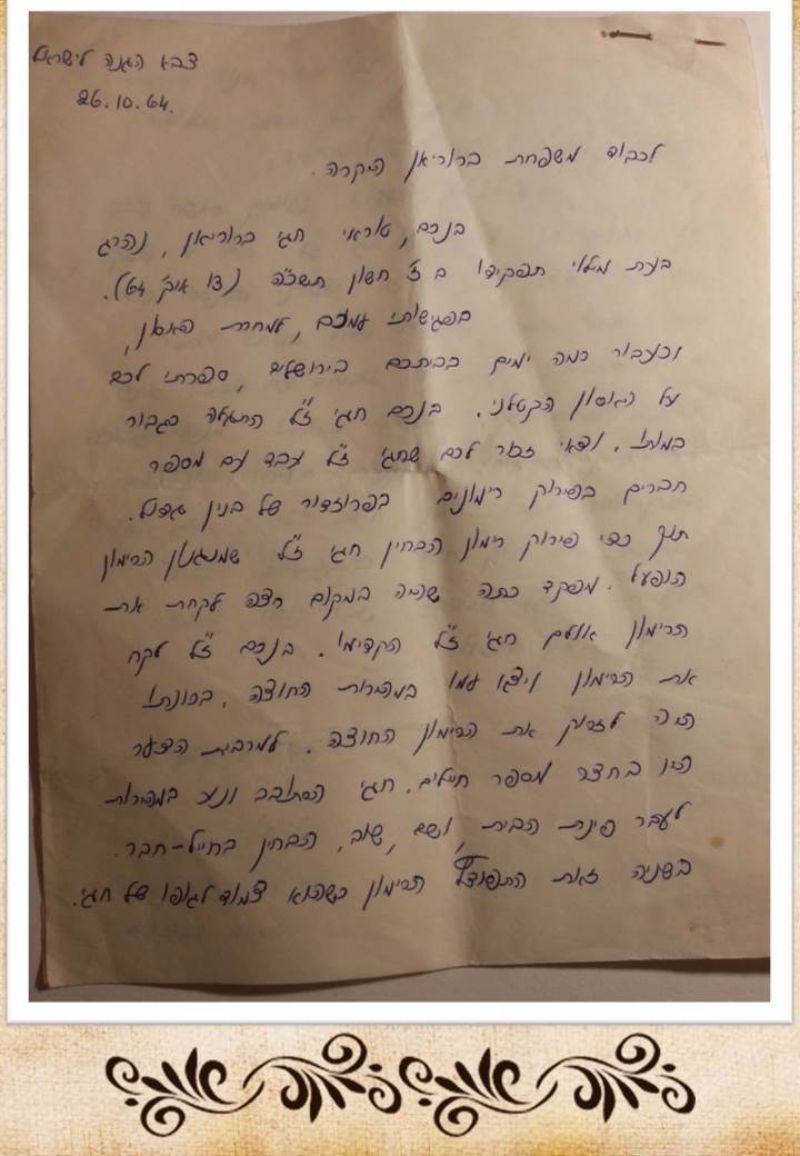 צבא הגנה לישראל
26.10.64.
לכבוד משפחת ברוריאן היקרה.
בנכם, טוראי חגי ברוריאן, נהרג
בעת מילוי תפקידו ב ז' חשון תשכ"ה (13 אוק' 64).
בפגישותי עמכם, למחרת האסון,
וכעבור כמה ימים בביתכם בירושלים, ספרתי לכם
על האסון הקטלני. בנכם חגי ז"ל התגלה כגבור
במותו. ודאי זכור לכם שחגי ז"ל עבד עם מספר
חברים בפירוק רימונים בפרוזדור של בנין גדול.
תוך כדי פירוק רימון הבחין חגי ז"ל שמנגנון הרימון
הופעל. מפקד כתה שהיה במקום רצה לקחת את
הרימון אולם חגי ז"ל הקדימו. בנכם ז"ל לקח
את הרימון ויצא עמו במהירות החוצה, בכונתו
היה לזרוק את הרימון החוצה. למרבית הצער
היו בחצר מספר חיילים. חגי הסתובב ונע במהירות
לעבר פינת הבית, ושם, שוב, הבחין בחייל-חבר.
בשניה זאת התפוצץ הרימון כשהוא צמוד לגופו של חגי.